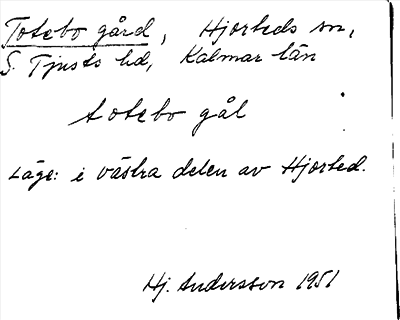 Totebo gård, Hjorteds sn,
S. Tjusts hd, Kalmar län
totebo gål
Läge: i västra delen av Hjorted.
Hj. Andersson 1951